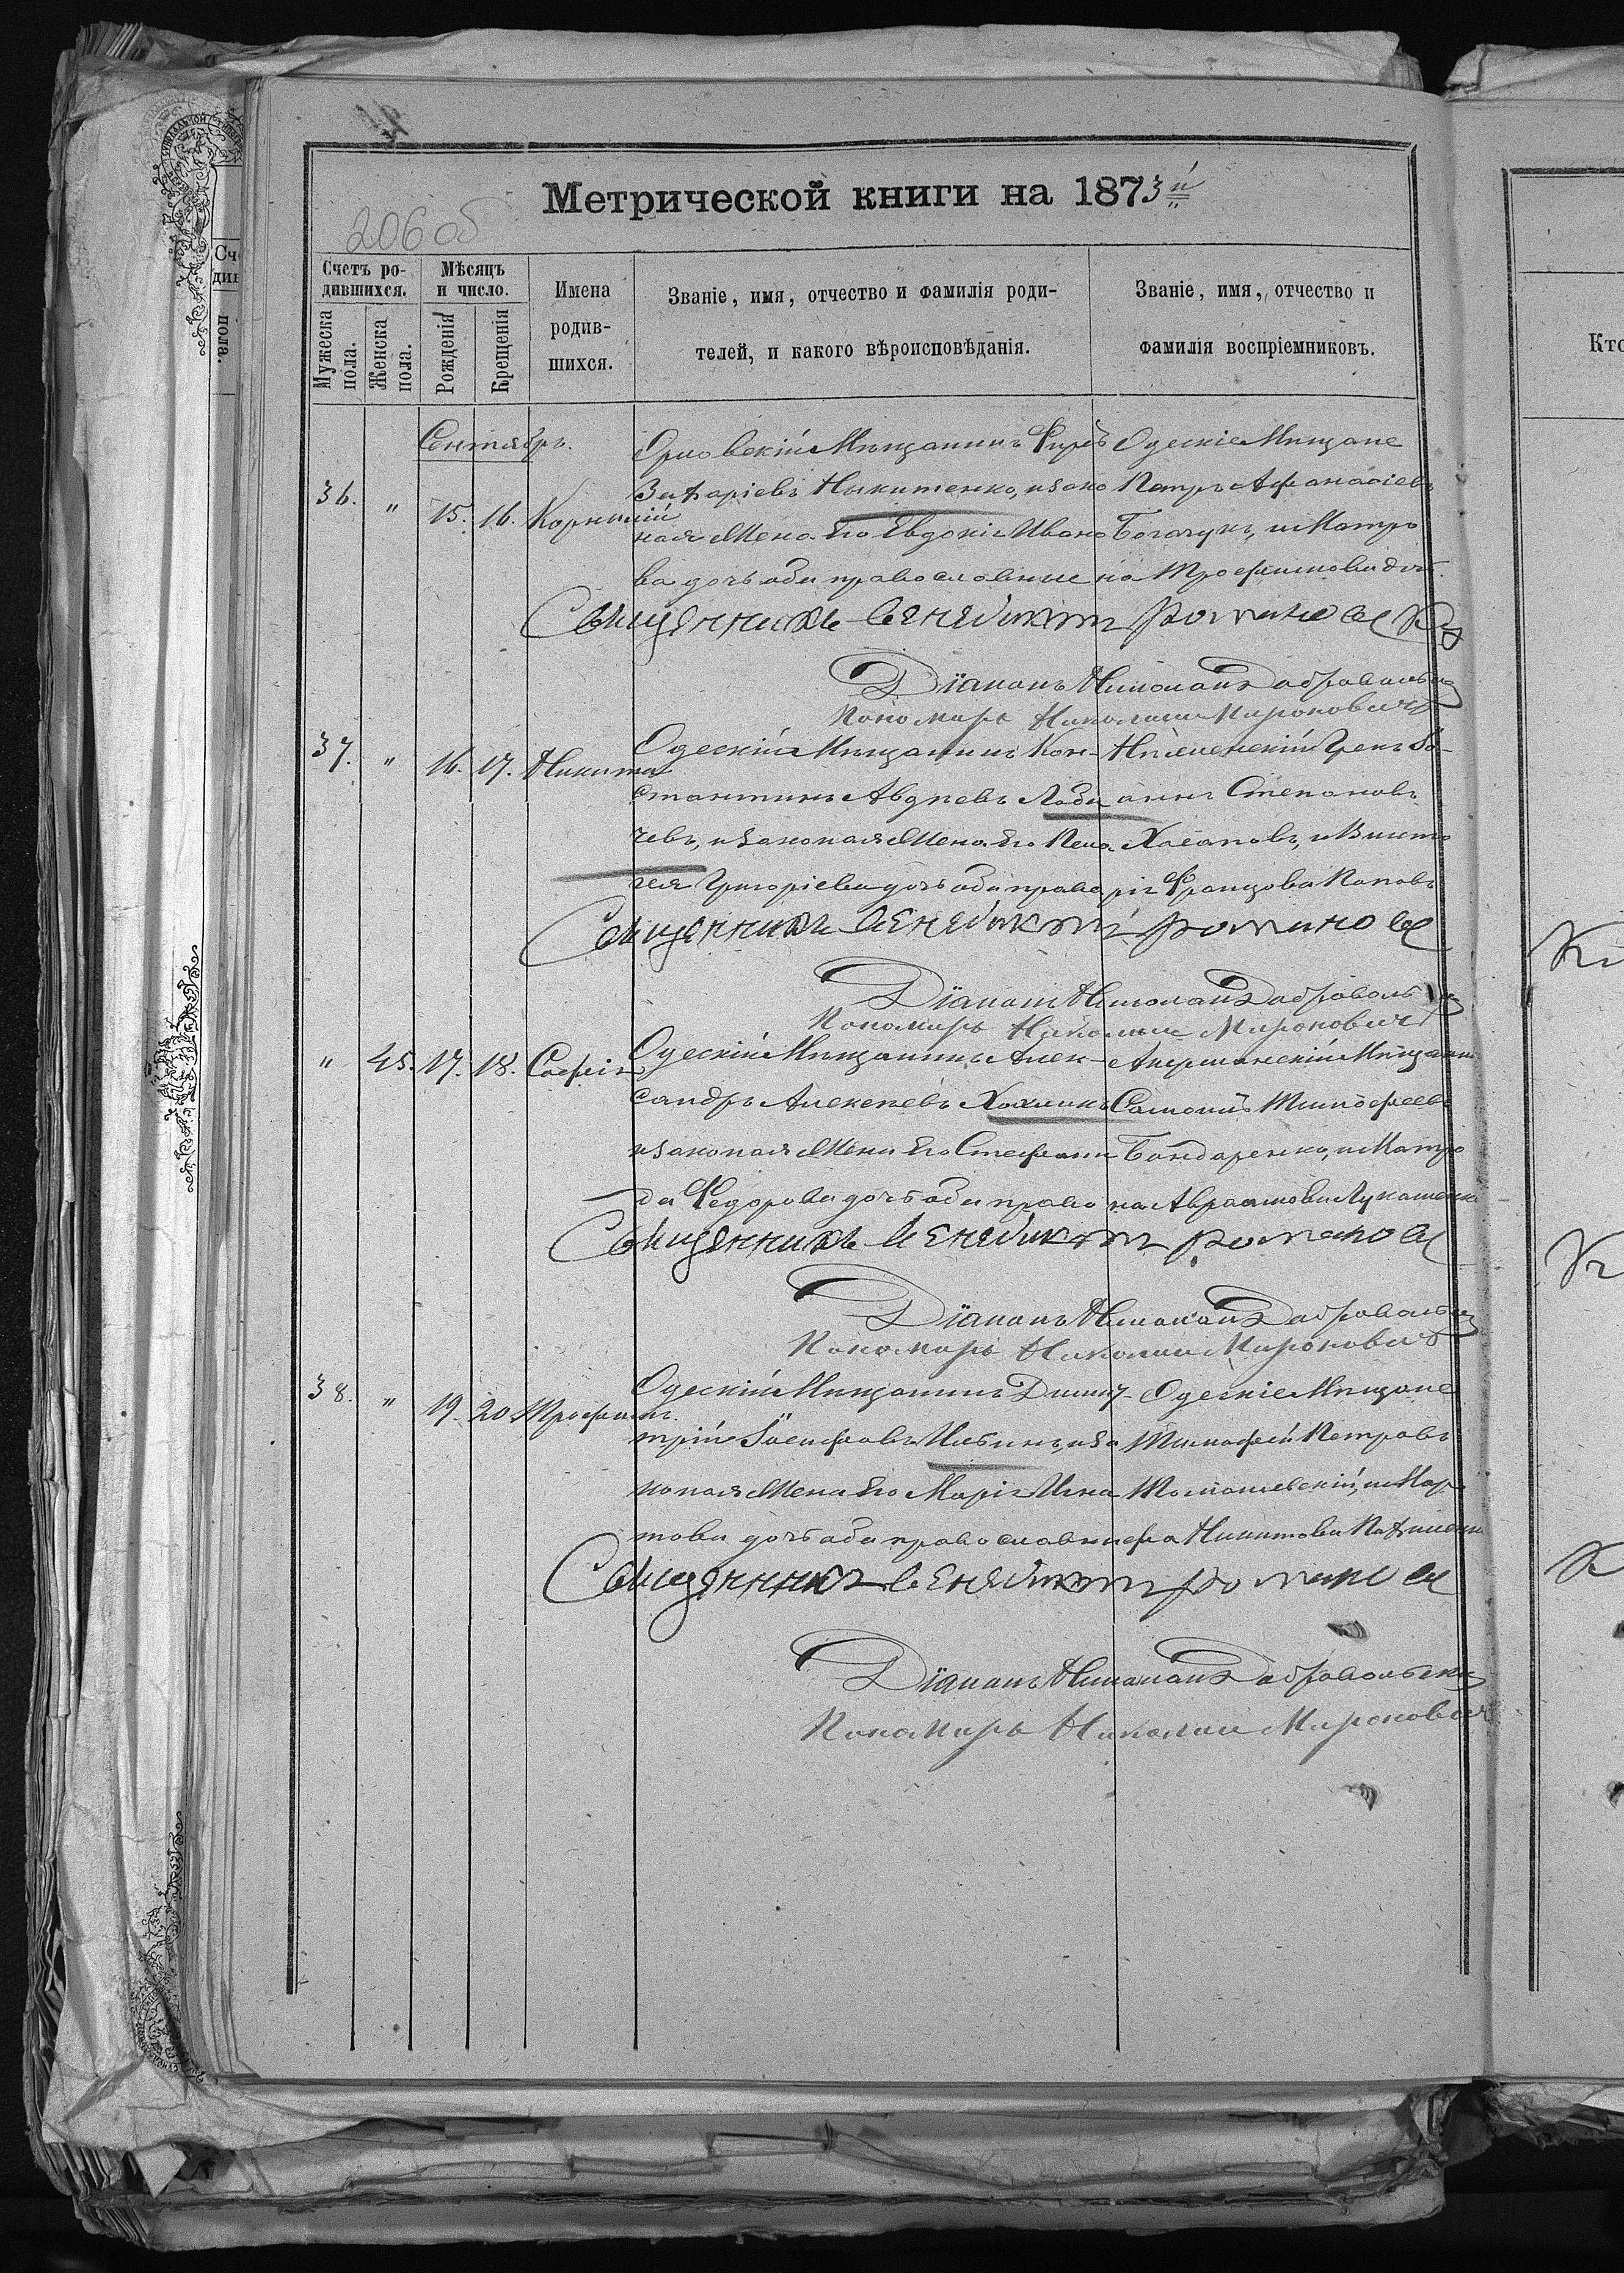 Метрической книги на 1873й
206 об
Счетъ родившихся.
Мужеска пола.
Женска пола.
Мѣсяцъ и число.
Рожденія
Крещенія
Имена родившихся.
Званіе, имя, отчество и фамилія родителей, и какого вѣроисповѣданія.
Званіе, имя, отчество и фамилія воспріемниковъ.
Сентябрь.
36. " 15. 16. Корнилій
Мѣщанинъ
Захаріевъ Никитенко, и зако
ная жена его Евдокія Ивано
ва дочь оба православные
Одескіе Мѣщане
Петръ Афанасіевъ
Богачукъ, и Матро
на Трофимова доч.
Священникъ Венедиктъ Романовск
Діаконъ Николай Добровольск
Пономарь Николай Мироновичъ
37. " 16. 17. Никита
Одескій Мѣщанинъ Кон-
стантинъ Авдѣевъ Лоба
чевъ, и законая жена его Пела
гея Григоріева дочь оба право
Грекъ Іо-
аннъ Степановъ
Хасаповъ, и Викто
рія Францова Поповъ
Священникъ Венедиктъ Романовск
Діаконъ Николай Добровольск
Пономарь Николай Мироновичъ
" 45. 17. 18. Софія
Одескій Мѣщанинъ Алек-
сандръ Алексѣевъ
и законая жена его Стефани
да Федорова дочь оба право
Акерманскій Мѣщанин
Самоилъ Тимофеевъ
Бондаренко, и Матро
на Авраамова Лукашенк
Священникъ Венедиктъ Романовск
Діаконъ Николай Добровольск
Пономарь Николай Мироновичъ
38. " 19. 20. Трофимъ.
Одескій Мѣщанинъ Дими-
трій Іосифовъ Ильинъ, и за
коная жена его Марія Игна
това дочь оба православн
Одескіе Мѣщане
Тимофей Петровъ
Томашевскій, и Мар
фа Никитова
Священникъ Венедиктъ Романовск
Діаконъ Николай Добровольскій
Пономарь Николай Мироновичъ
Кто